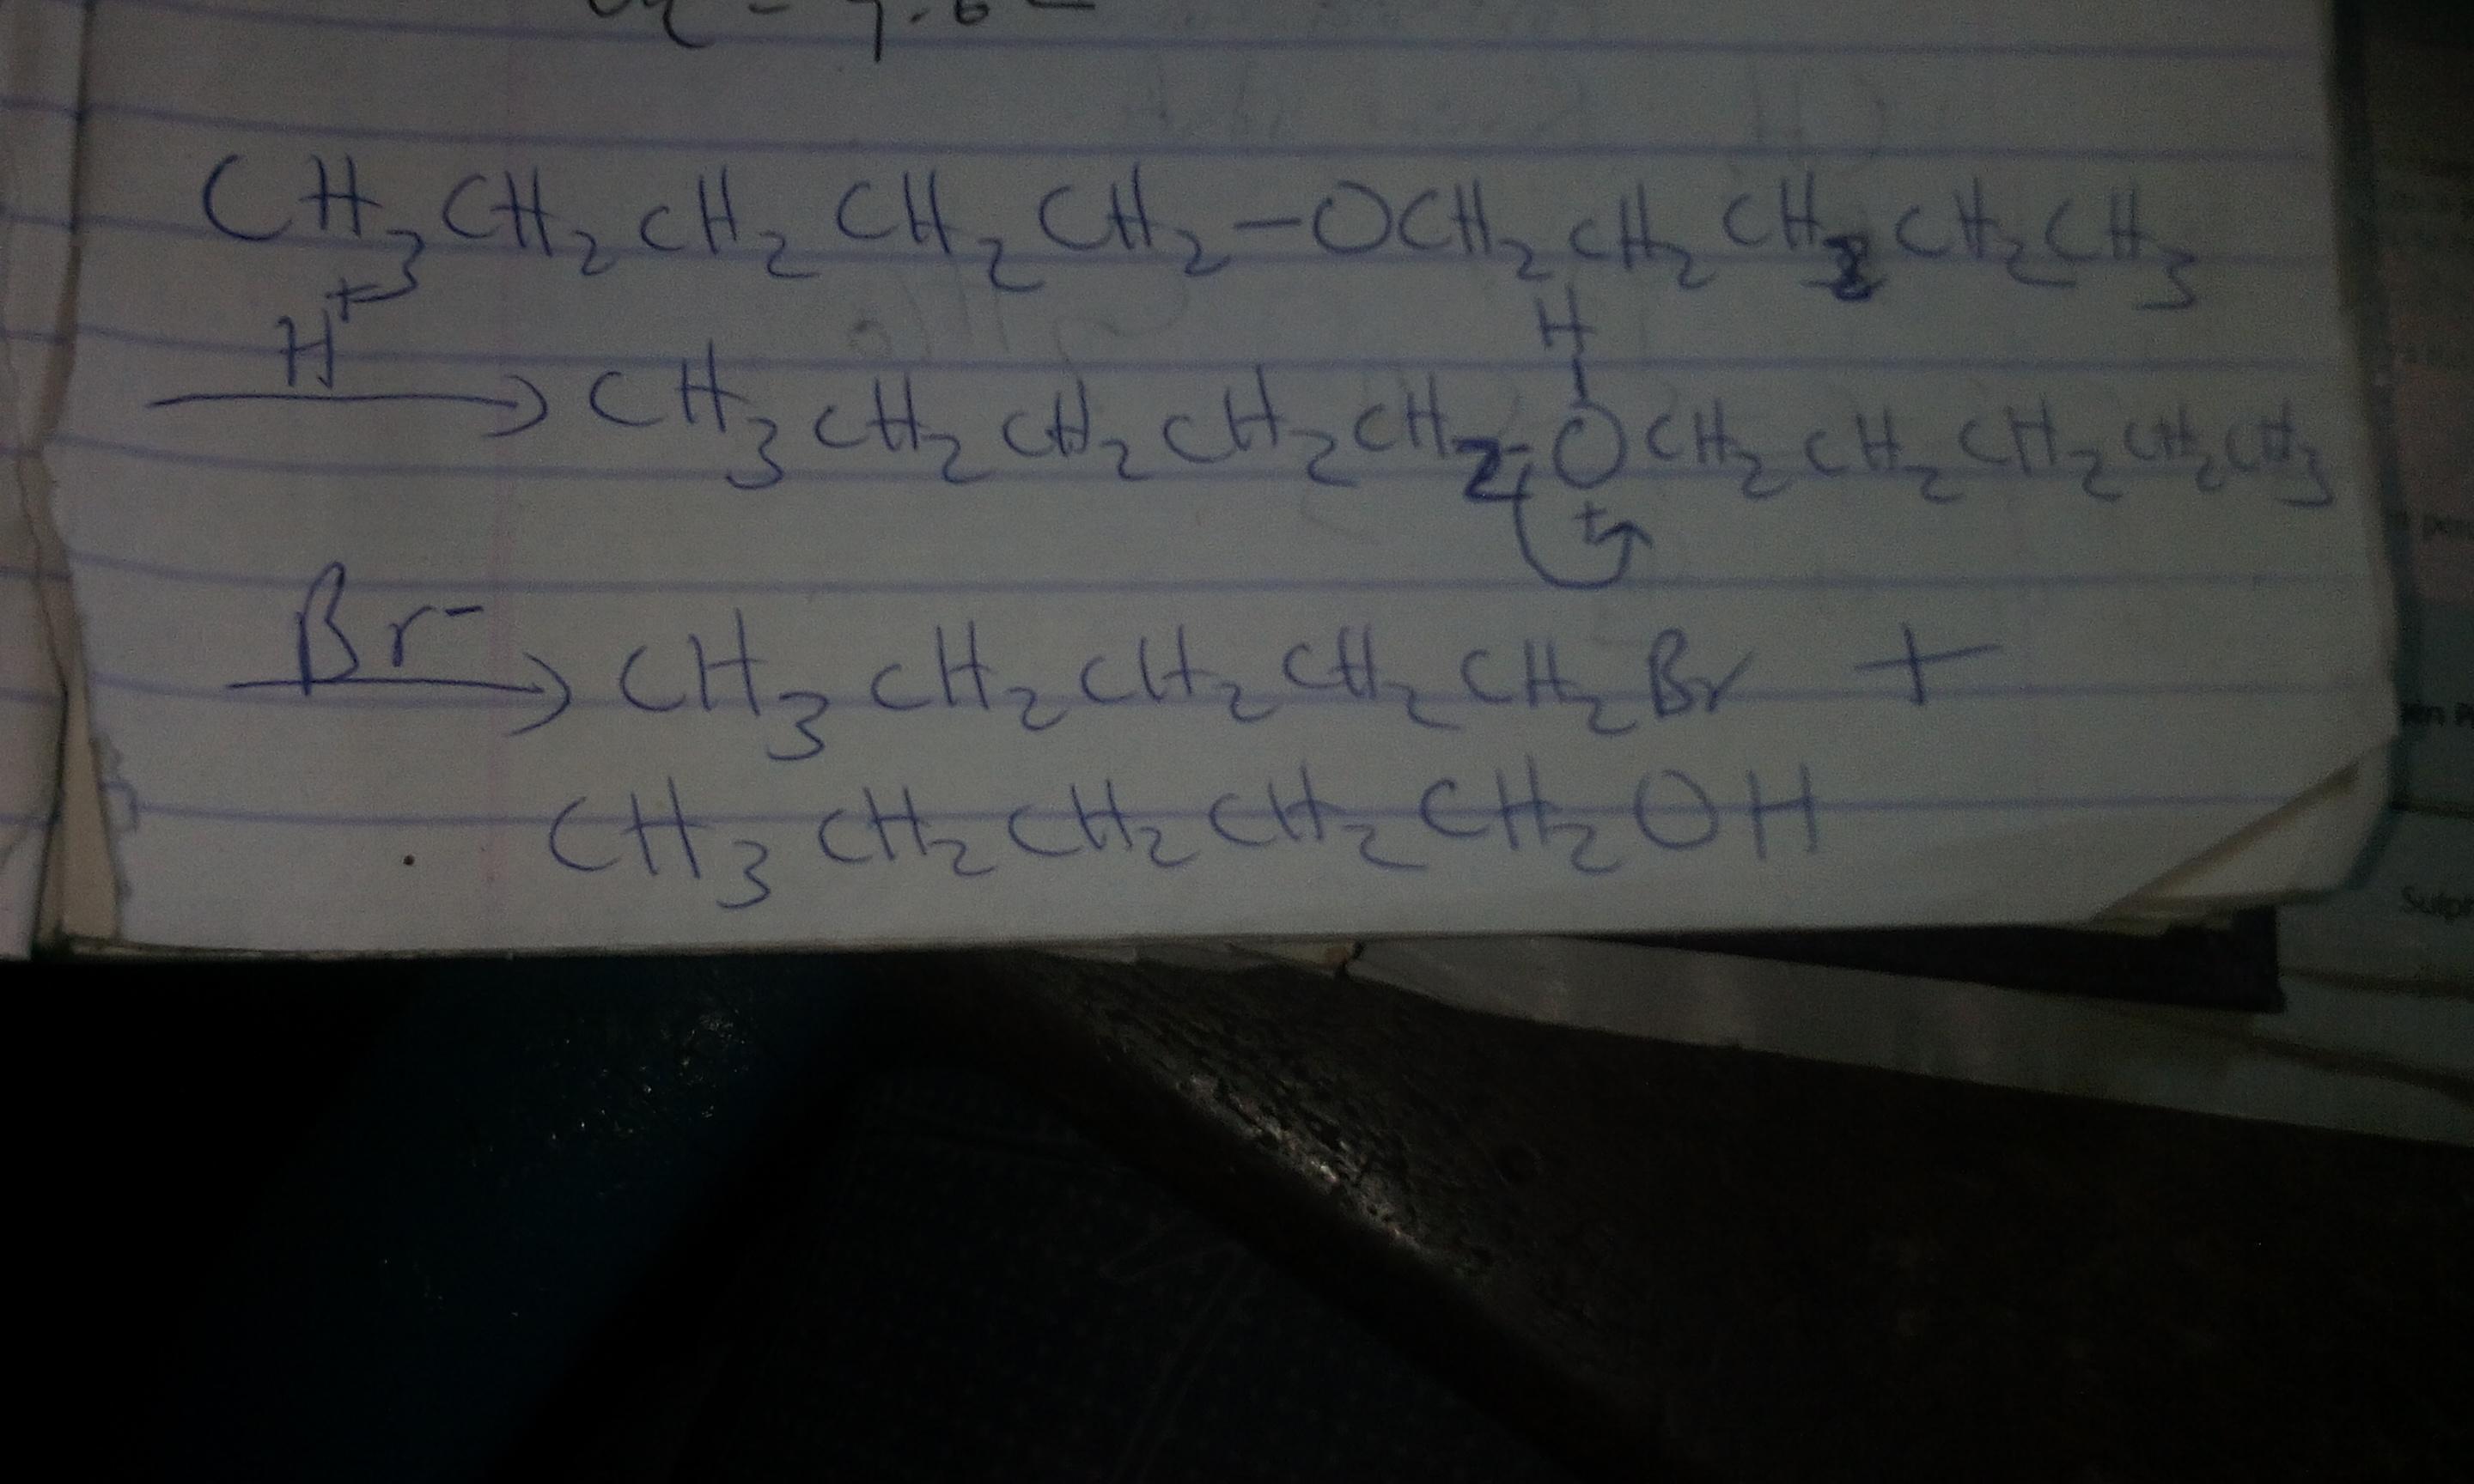 = 7.6
CH₃CH₂CH₂CH₂CH₂-OCH₂CH₂CH₂CH₂CH₃
H⁺
H
→ CH₃CH₂CH₂CH₂CH₂-OCH₂CH₂CH₂CH₂CH₃
+
Br⁻
→ CH₃CH₂CH₂CH₂CH₂Br +
CH₃CH₂CH₂CH₂CH₂OH